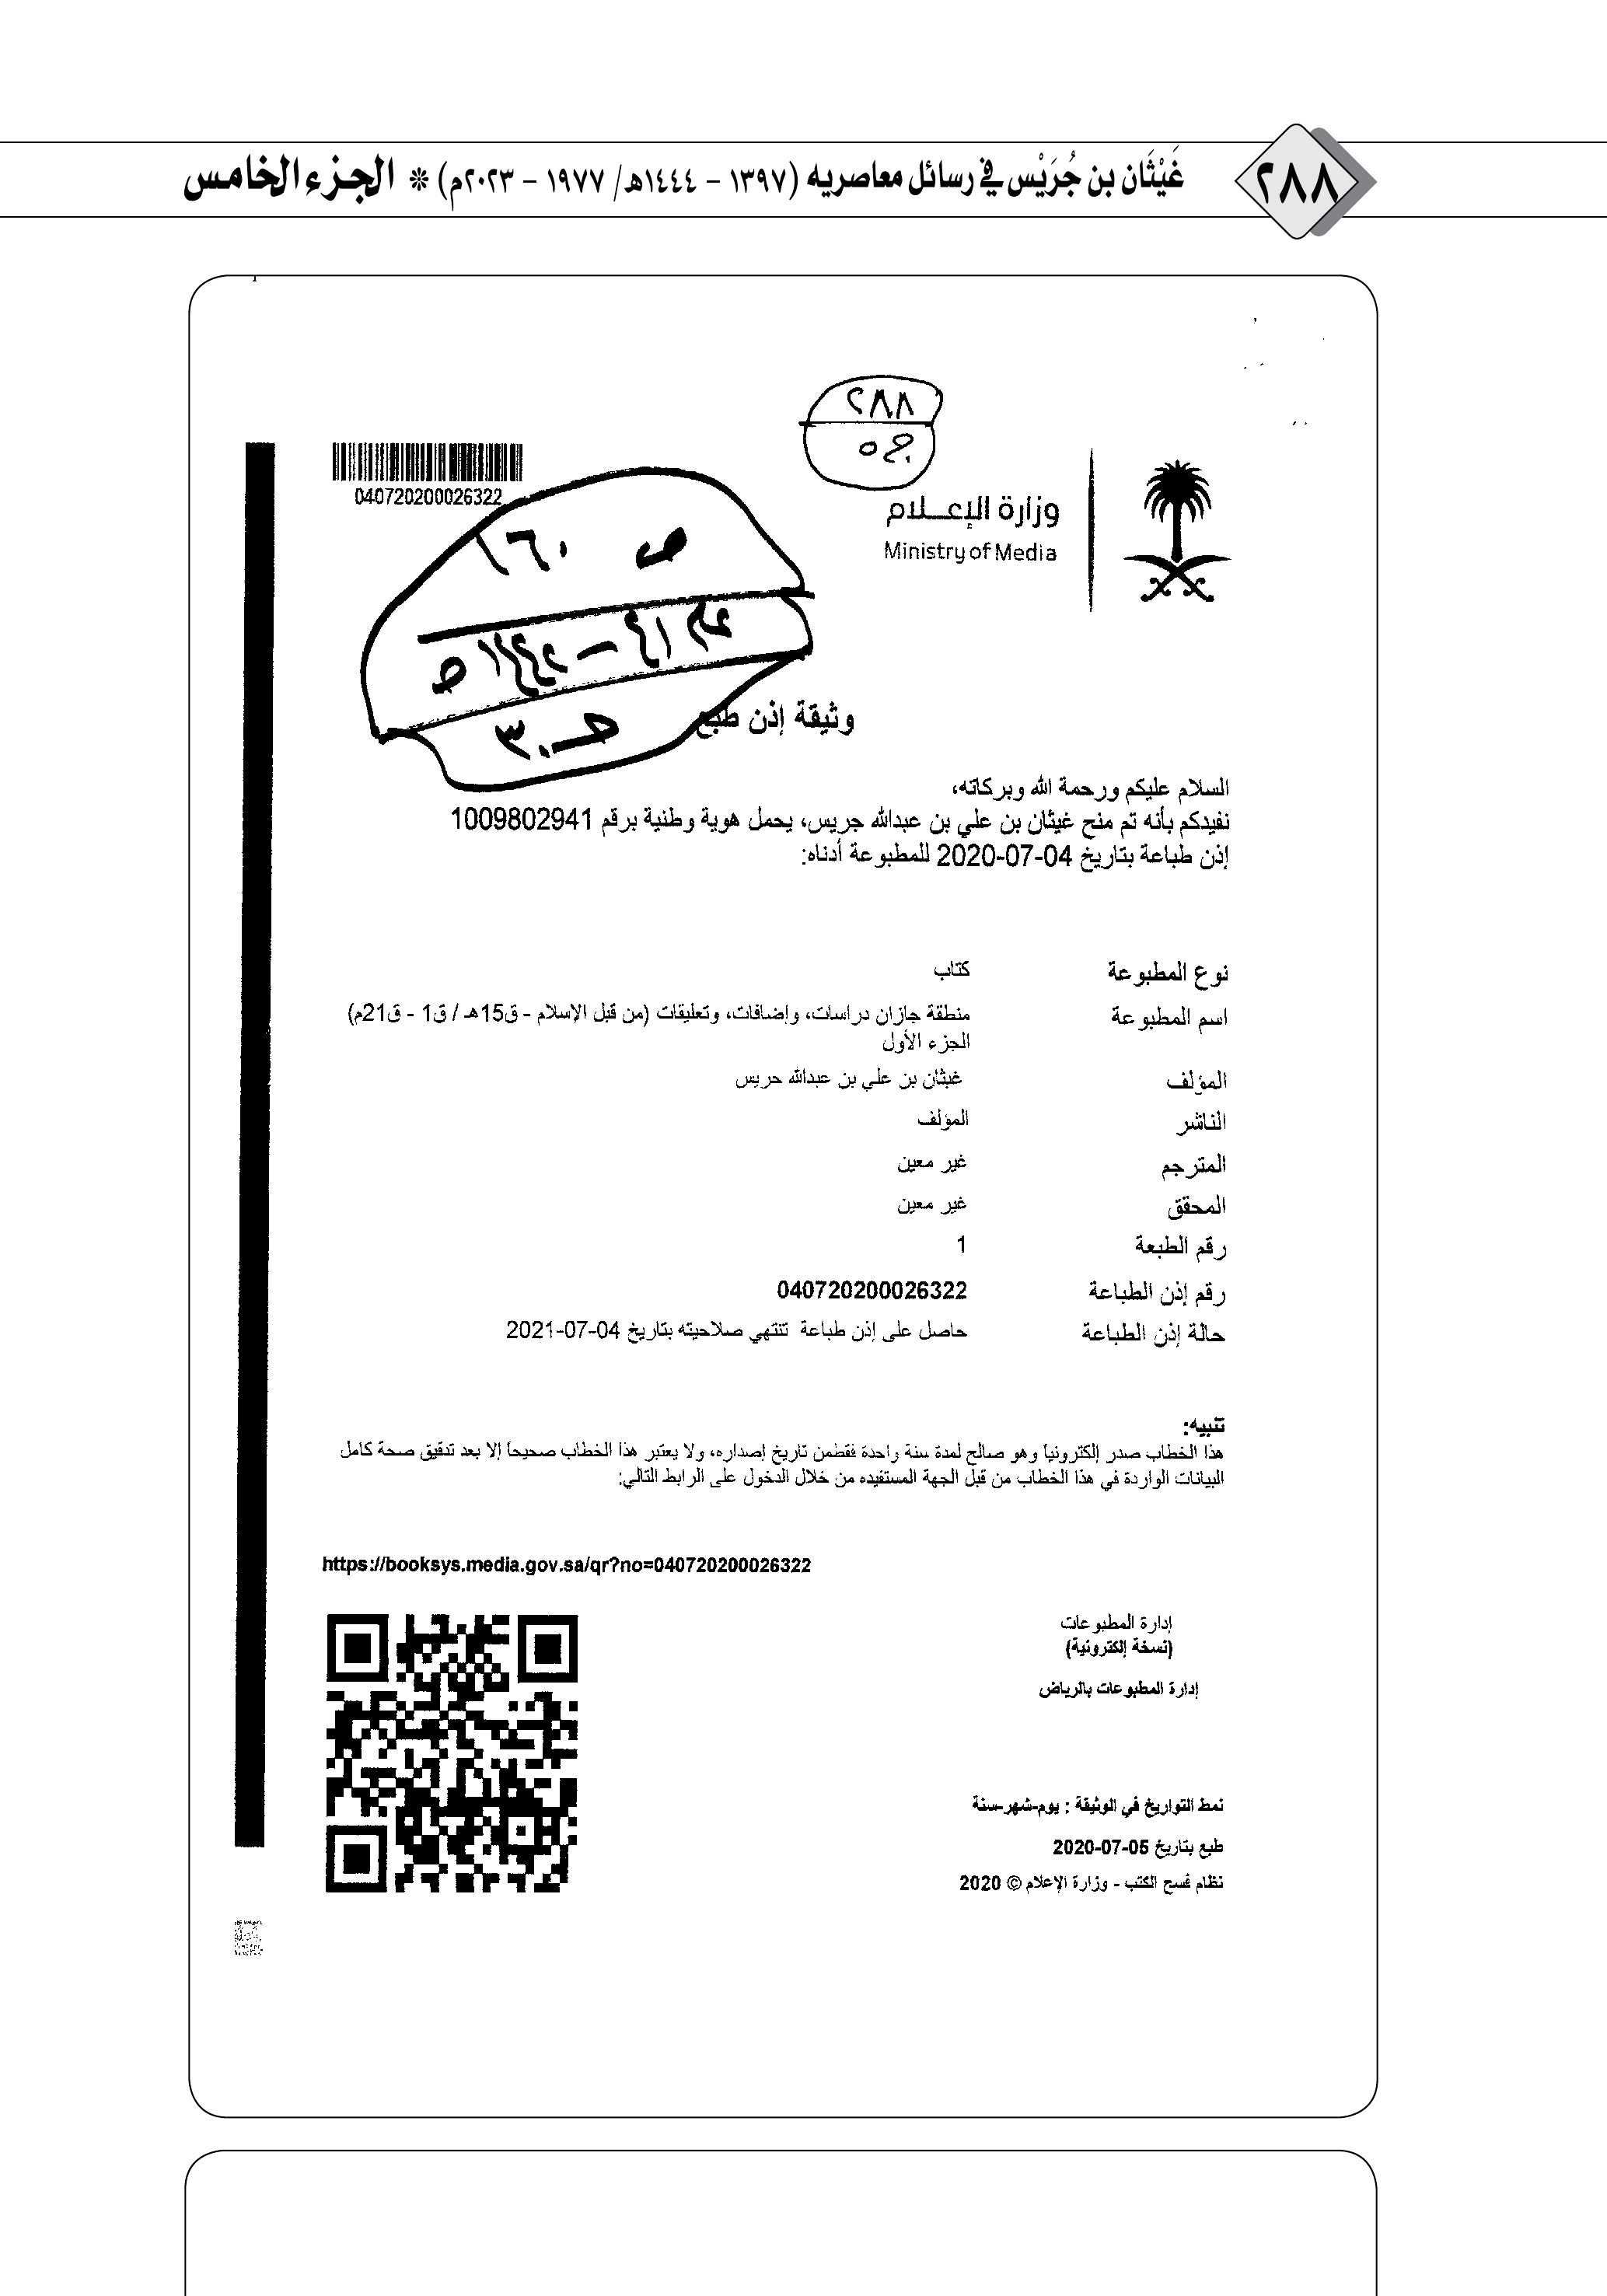 ٢٨٨
غَيْثَان بن جُرَيْس في رسائل معاصريه (١٣٩٧ - ١٤٤٤هـ/ ١٩٧٧ - ٢٠٢٣م) * الجزء الخامس
٢٨٨
040720200026322
وزارة الإعـــلام
Ministry of Media
ص ١٦٠
وثيقة إذن طبع
السلام عليكم ورحمة الله وبركاته،
نفيدكم بأنه تم منح غيثان بن علي بن عبدالله جريس، يحمل هوية وطنية برقم 1009802941
إذن طباعة بتاريخ 04-07-2020 للمطبوعة أدناه:
نوع المطبوعة كتاب
اسم المطبوعة منطقة جازان دراسات، وإضافات، وتعليقات (من قبل الإسلام - ق15هـ / ق1 - ق21م)
الجزء الأول
المؤلف غيثان بن علي بن عبدالله جريس
الناشر المؤلف
المترجم غير معين
المحقق غير معين
رقم الطبعة 1
رقم إذن الطباعة 040720200026322
حالة إذن الطباعة حاصل على إذن طباعة تنتهي صلاحيته بتاريخ 04-07-2021
تنبيه:
هذا الخطاب صدر إلكترونياً وهو صالح لمدة سنة واحدة فقطمن تاريخ إصداره، ولا يعتبر هذا الخطاب صحيحاً إلا بعد تدقيق صحة كامل
البيانات الواردة في هذا الخطاب من قبل الجهة المستفيده من خلال الدخول على الرابط التالي:
https://booksys.media.gov.sa/qr?no=040720200026322
إدارة المطبوعات
(نسخة إلكترونية)
إدارة المطبوعات بالرياض
نمط التواريخ في الوثيقة : يوم-شهر-سنة
طبع بتاريخ 05-07-2020
نظام فسح الكتب - وزارة الإعلام © 2020